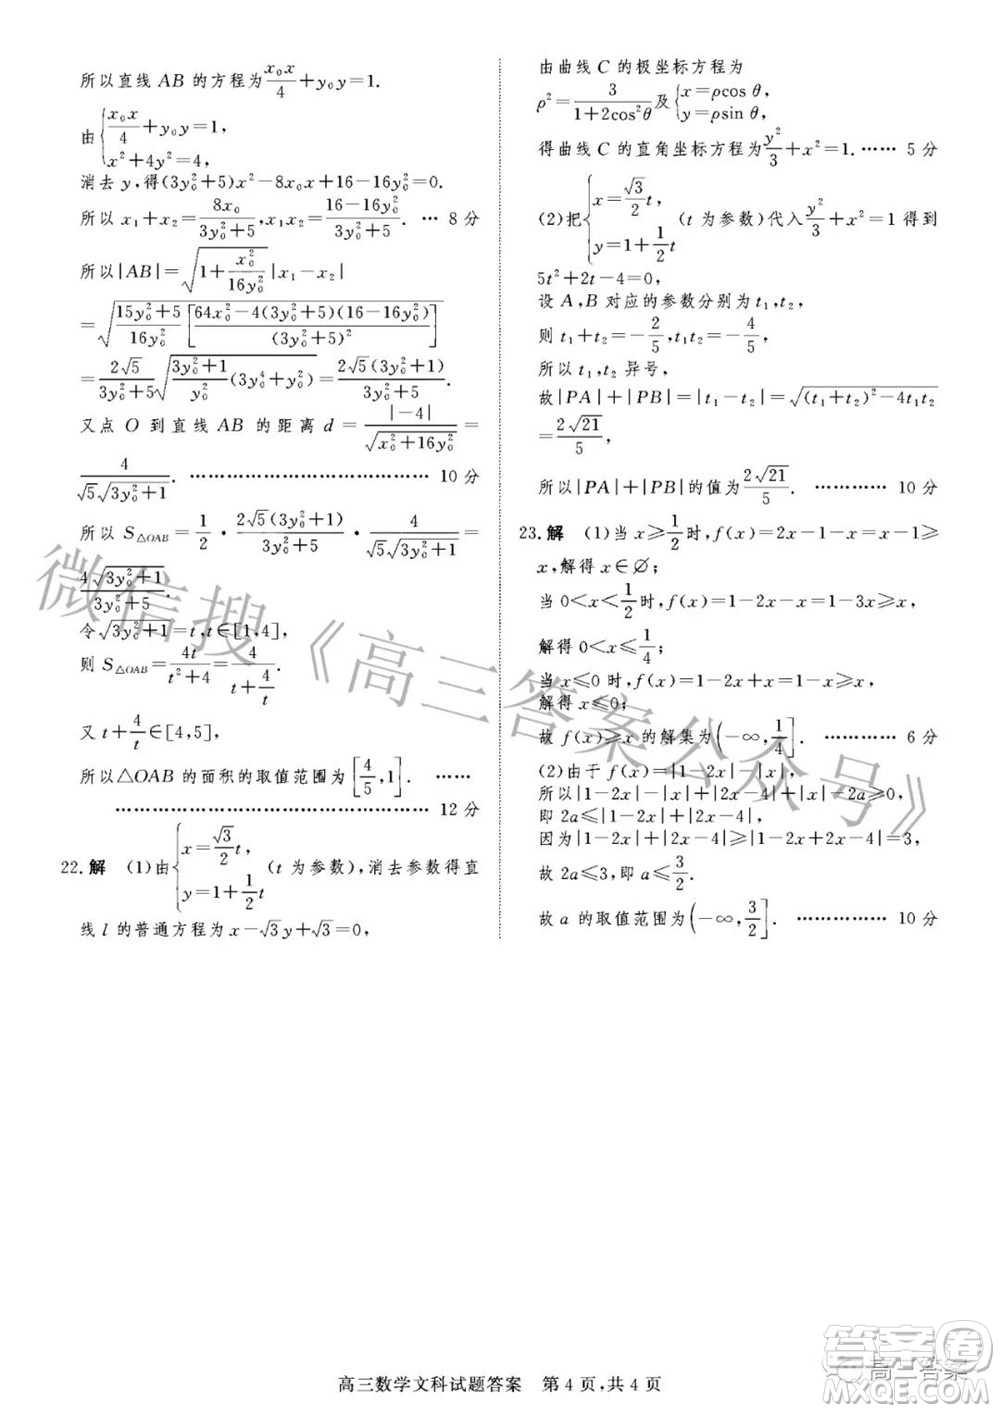 所以直线 AB 的方程为 x₀x/4 + y₀y = 1.
由 { x₀x/4 + y₀y = 1,
x² + 4y² = 4,
消去 y,得(3y₀²+5)x²-8x₀x+16-16y₀²=0.
所以 x₁+x₂ = 8x₀/(3y₀²+5), x₁x₂ = (16-16y₀²)/(3y₀²+5). … 8 分
所以|AB| = √(1 + x₀²/(16y₀²)) |x₁-x₂|
= √( (15y₀²+5)/(16y₀²) [ (64x₀²-4(3y₀²+5)(16-16y₀²))/(3y₀²+5)² ] )
= 2√5/(3y₀²+5) √( (3y₀²+1)/y₀² (3y₀⁴+y₀²) ) = 2√5(3y₀²+1)/(3y₀²+5).
又点 O 到直线 AB 的距离 d = |-4|/√(x₀²+16y₀²) =
4/(√5√(3y₀²+1)). ………………………… 10 分
所以 S△OAB = 1/2 · 2√5(3y₀²+1)/(3y₀²+5) · 4/(√5√(3y₀²+1)) =
4√(3y₀²+1)/(3y₀²+5).
令√(3y₀²+1)=t,t∈[1,4],
则 S△OAB = 4t/(t²+4) = 4/(t+4/t).
又 t+4/t∈[4,5],
所以△OAB 的面积的取值范围为[4/5,1]. ……
………………………………… 12 分
22.解 (1)由{ x=√3/2 t,
y=1+1/2 t (t 为参数),消去参数得直
线 l 的普通方程为 x-√3y+√3=0,
由曲线 C 的极坐标方程为
ρ²=3/(1+2cos²θ)及{ x=ρcos θ,
y=ρsin θ,
得曲线 C 的直角坐标方程为 y²/3+x²=1. …… 5 分
(2)把{ x=√3/2 t,
y=1+1/2 t (t 为参数)代入 y²/3+x²=1 得到
5t²+2t-4=0,
设 A,B 对应的参数分别为 t₁,t₂,
则 t₁+t₂=-2/5,t₁t₂=-4/5,
所以 t₁,t₂ 异号,
故|PA|+|PB|=|t₁-t₂|=√((t₁+t₂)²-4t₁t₂)
=2√21/5,
所以|PA|+|PB|的值为 2√21/5. ………… 10 分
23.解 (1)当 x≥1/2时,f(x)=2x-1-x=x-1≥
x,解得 x∈∅;
当 0<x<1/2时,f(x)=1-2x-x=1-3x≥x,
解得 0<x≤1/4;
当 x≤0 时,f(x)=1-2x+x=1-x≥x,
解得 x≤0;
故 f(x)≥x 的解集为(-∞,1/4]. ……… 6 分
(2)由于 f(x)=|1-2x|-|x|,
所以|1-2x|-|x|+|2x-4|+|x|≥2a,
即 2a≤|1-2x|+|2x-4|,
因为|1-2x|+|2x-4|≥|1-2x+2x-4|=3,
故 2a≤3,即 a≤3/2.
故 a 的取值范围为(-∞,3/2]. …………… 10 分
微信搜《高三答案公众号》
高三数学文科试题答案 第 4 页,共 4 页
答案圈
高三答案